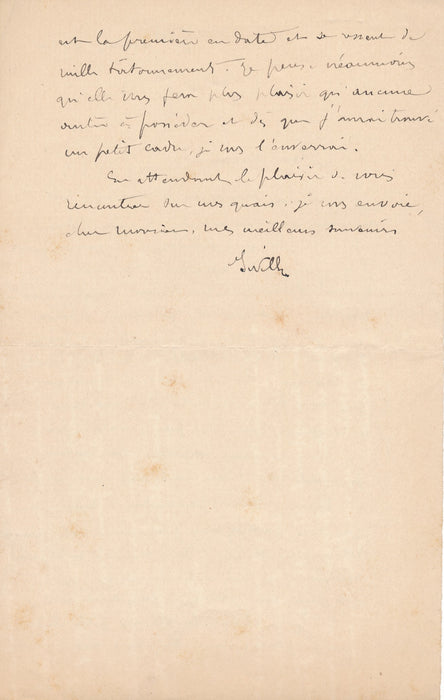 est la première en date et se ressent de
mille tâtonnements. Je pense néanmoins
qu'elle vous fera plus plaisir qu'aucune
autre à posséder et dès que j'aurai trouvé
un petit cadre, je vous l'enverrai.
En attendant le plaisir de vous
rencontrer sur mes quais, je vous envoie,
cher monsieur, mes meilleurs souvenirs